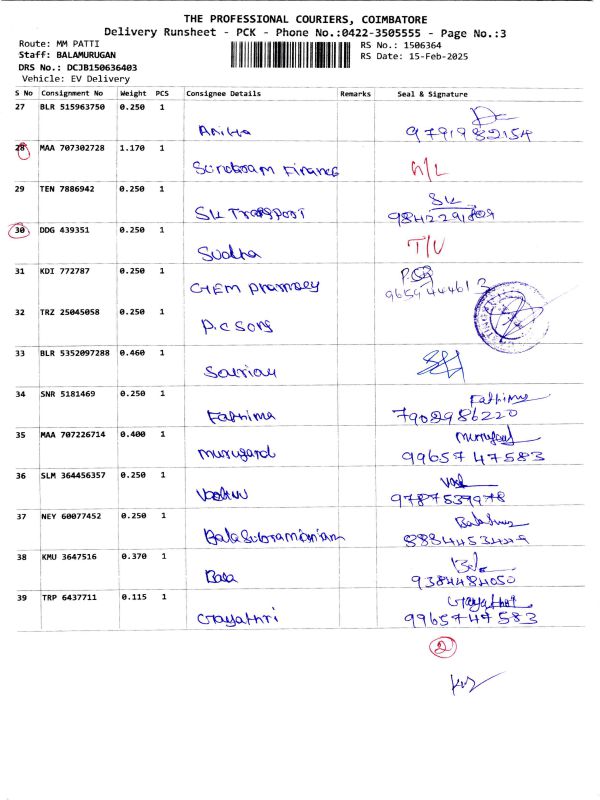 THE PROFESSIONAL COURIERS, COIMBATORE
Delivery Runsheet - PCK - Phone No.:0422-3505555 - Page No.:3
Route: MM PATTI RS No.: 1506364
Staff: BALAMURUGAN RS Date: 15-Feb-2025
DRS No.: DCJB150636403
Vehicle: EV Delivery
S No Consignment No Weight PCS Consignee Details Remarks Seal & Signature
27 BLR 515963750 0.250 1
Anitha 9791982154
28 MAA 707302728 1.170 1
Sundaram Finance N/L
29 TEN 7886942 0.250 1
SK Transport 9842291809
30 DDG 439351 0.250 1
Sudha T/V
31 KDI 772787 0.250 1
GEM 9659444613
32 TRZ 25045058 0.250 1
P.C Sons
33 BLR 5352097288 0.460 1
34 SNR 5181469 0.250 1 Fathima
Fathima 7902986220
35 MAA 707226714 0.400 1
9965747583
36 SLM 364456357 0.250 1
37 NEY 60077452 0.250 1
Balasubramaniam
38 KMU 3647516 0.370 1
Bala 9384484050
39 TRP 6437711 0.115 1 Gayathri
Gayathri 9965747583
2